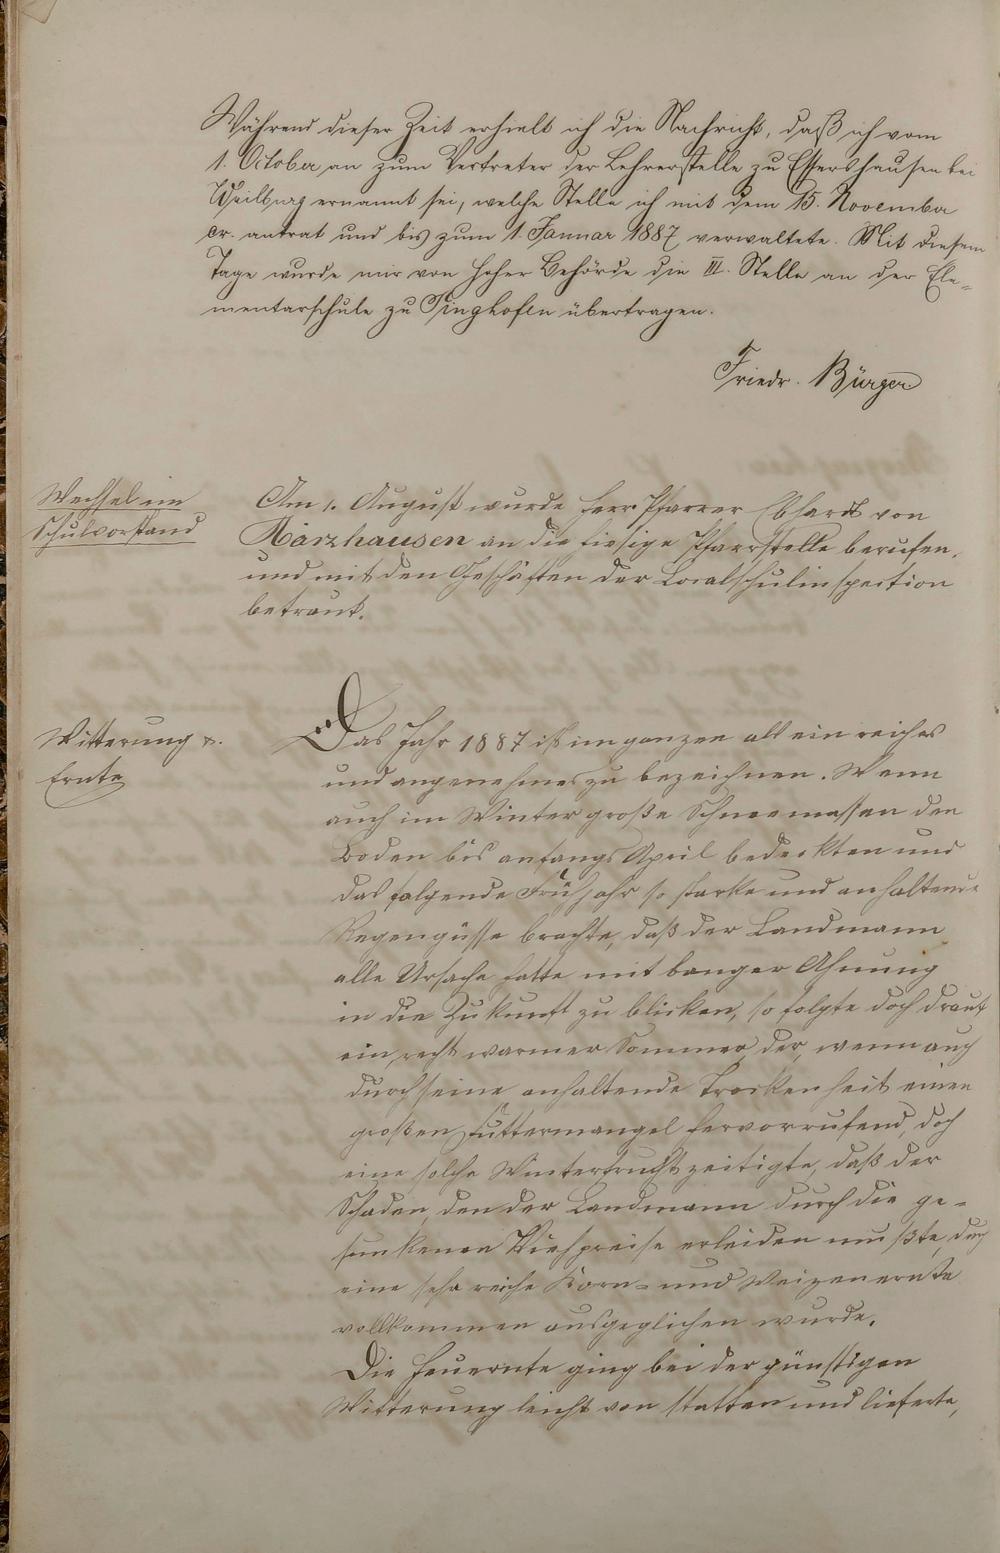 Während dieser Zeit erhielt ich die Nachricht, daß ich vom
1. October an zum Vertreter der Lehrerstelle zu Essershausen bei
Weilburg ernannt sei, welche Stelle ich mit dem 15. November
cr. antrat und bis zum 1. Januar 1887 verwaltete. Mit diesem
Tage wurde mir von hoher Behörde die III. Stelle an der Ele=
mentarschule zu Singhofen übertragen.
Friedr. Bürger.
Wechsel im
Schulvorstand
Am 1. August wurde Herr Pfarrer Ebhardt von
Märzhausen an die hiesige Pfarrstelle berufen,
und mit den Geschäften der Localschulinspection
betraut.
Witterung u.
Ernte
Das Jahr 1887 ist im ganzen als ein reiches
und angenehmes zu bezeichnen. Wenn
auch im Winter große Schneemassen den
Boden bis anfangs April bedeckten und
das folgende Frühjahr so starke und anhaltende
Regengüsse brachte, daß der Landmann
alle Ursache hatte mit banger Ahnung
in die Zukunft zu blicken, so folgte doch drauf
ein recht warmer Sommer, der, wenn auch
durch seine anhaltende Trockenheit einen
großen Futtermangel hervorrufend, doch
eine solche Winterfrucht zeitigte, daß der
Schaden, den der Landmann durch die ge=
sunkenen Viehpreise erleiden mußte, durch
eine sehr reiche Korn= und Weizenernte
vollkommen ausgeglichen wurde.
Die Heuernte ging bei der günstigen
Witterung leicht von statten und lieferte,